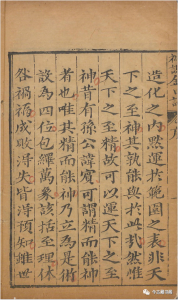 造化之內默運於範圍之表非天
下之至神其孰能與於此哉然惟
天下之至精故可以運天下之至
神昔有孫公諱賓可謂精而能神
者也唯其精而能神乃立為是術
設為四位包羅萬象該括至理休
咎禍福成敗得失皆得預知雖世